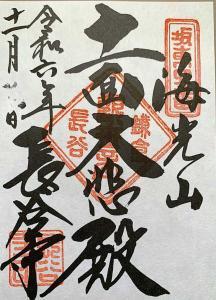 坂東
海光山
十一面大悲殿
鎌倉
長谷
長谷寺
令和六年
十一月日